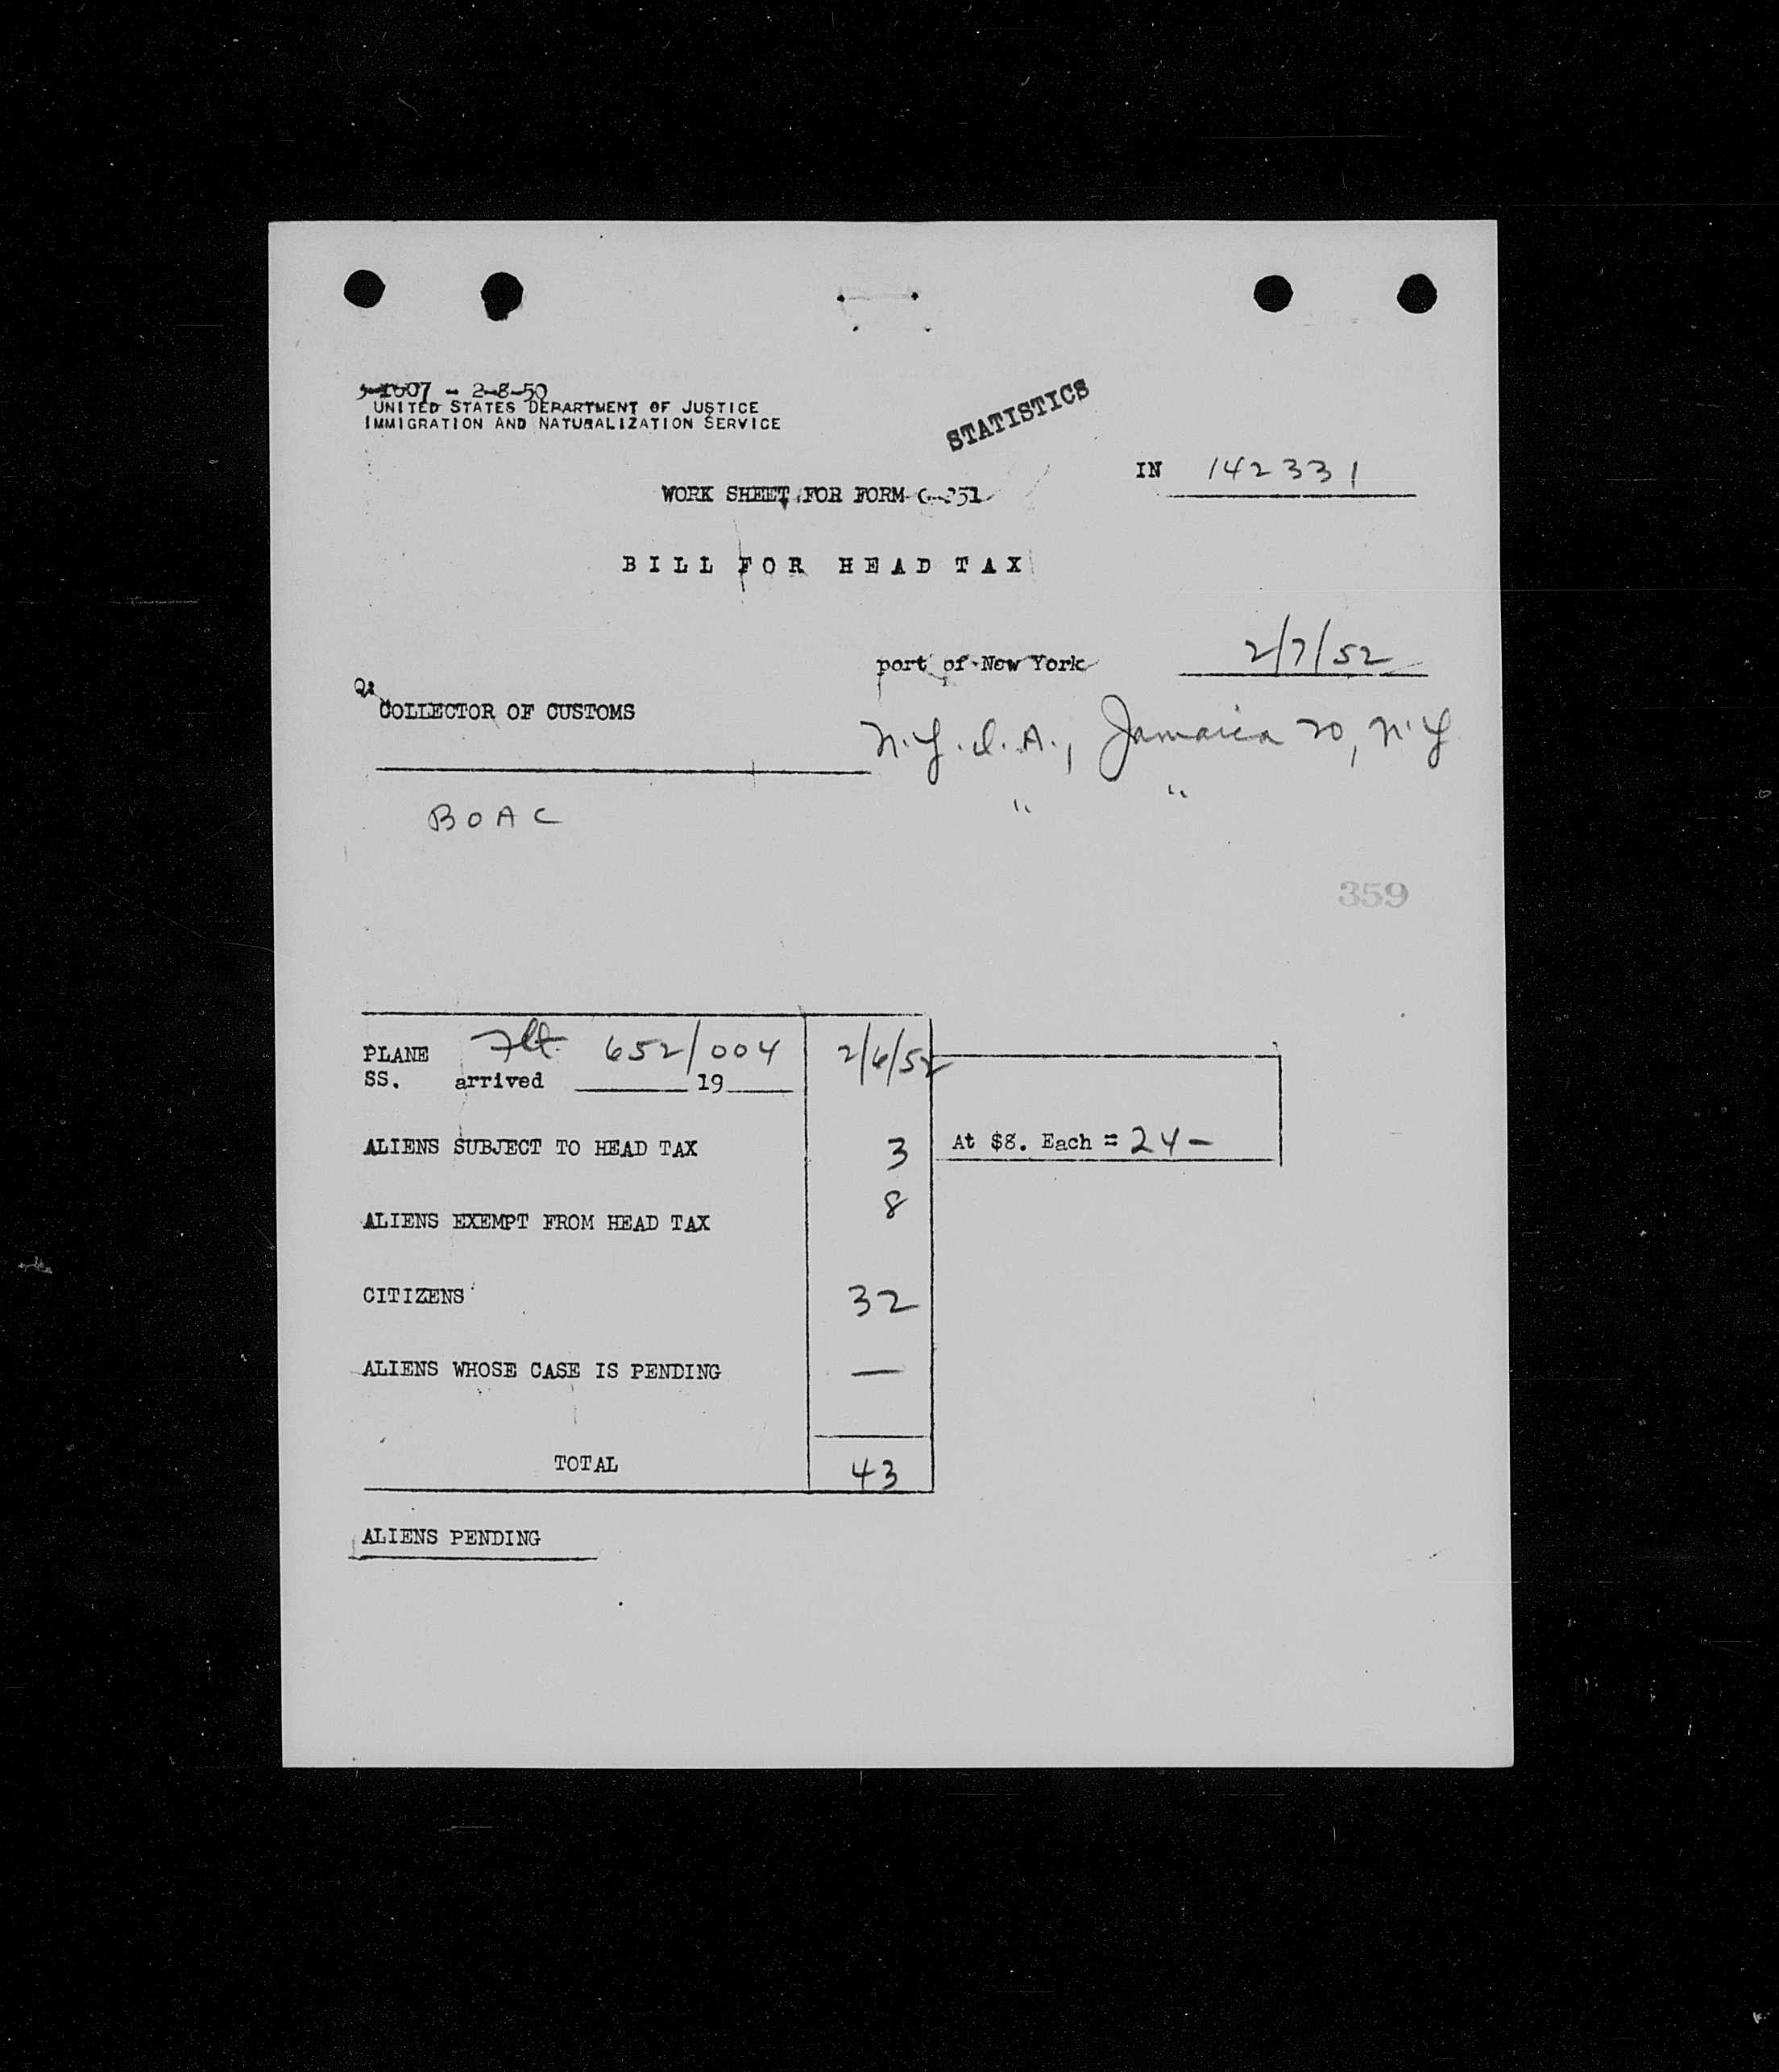 -1607 - 2-8-50
UNITED STATES DEPARTMENT OF JUSTICE
IMMIGRATION AND NATURALIZATION SERVICE
STATISTICS
IN 142331
WORK SHEET FOR FORM G-251
BILL FOR HEAD TAX
port of New York 2/7/52
COLLECTOR OF CUSTOMS
N.Y.I.A., Jamaica 20, N.Y
" "
BOAC
359
PLANE Flt. 652/004 2/6/52
SS. arrived ______ 19____
ALIENS SUBJECT TO HEAD TAX 3 At $8. Each = 24-
ALIENS EXEMPT FROM HEAD TAX 8
CITIZENS 32
ALIENS WHOSE CASE IS PENDING —
TOTAL 43
ALIENS PENDING